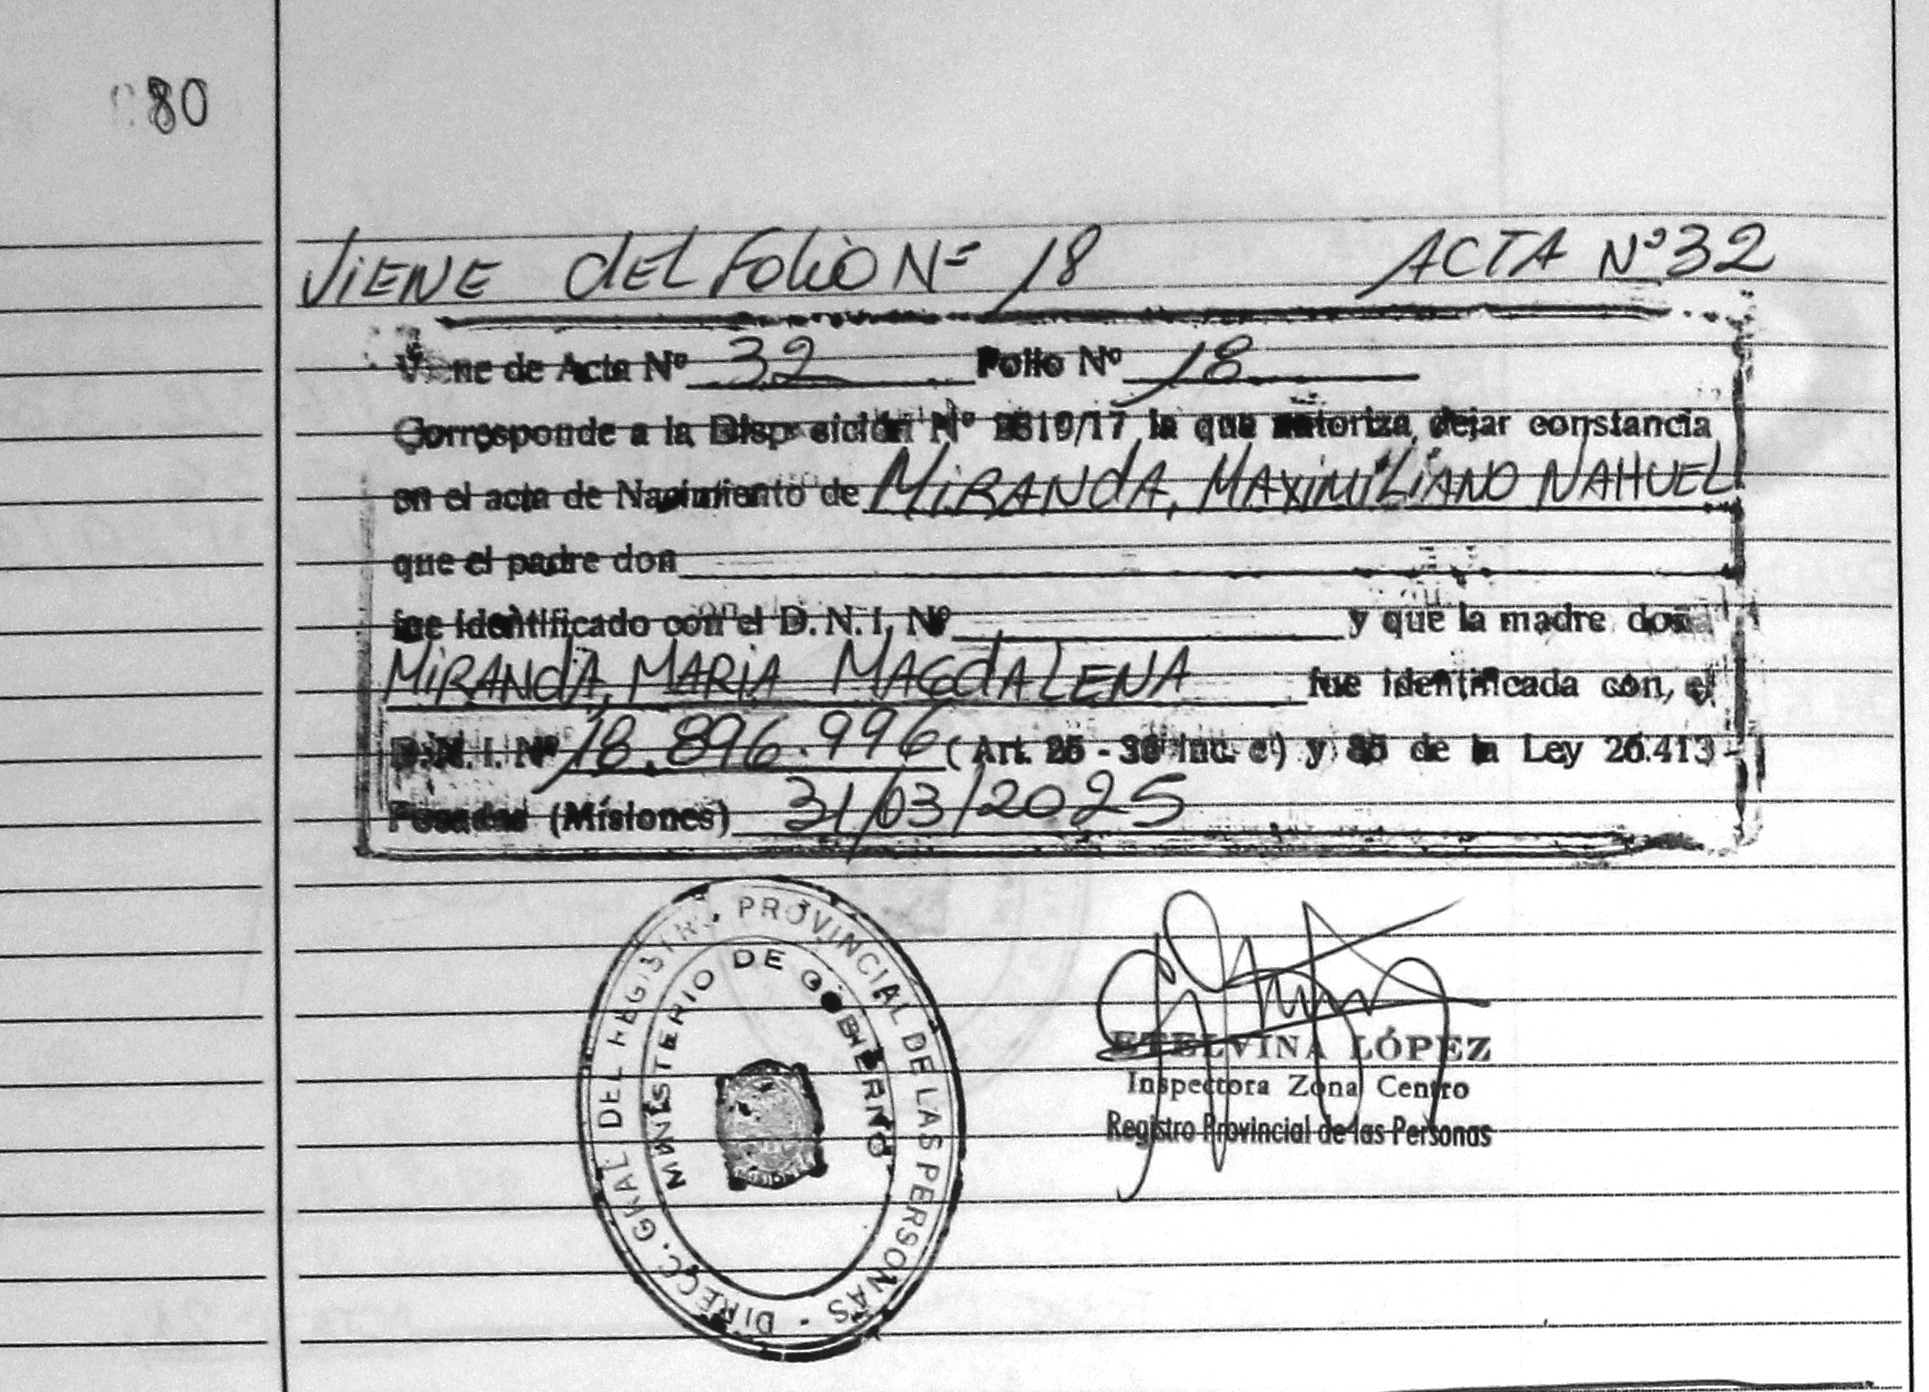 80
VIENE DEL FOLIO Nº 18 ACTA Nº 32
Viene de Acta Nº 32 Folio Nº 18
Corresponde a la Disposición Nº 2619/17 la que autoriza dejar constancia
en el acta de Nacimiento de MIRANDA, MAXIMILIANO NAHUEL
que el padre don
fue identificado con el D.N.I. Nº y que la madre doña
MIRANDA, MARIA MAGDALENA fue identificada con el
D.N.I. Nº 18.896.996 (Art. 25 - 36 Inc. c) y 85 de la Ley 26.413
Posadas (Misiones) 31/03/2025
DIRECC. GRAL DEL REGISTRO PROVINCIAL DE LAS PERSONAS -
MINISTERIO DE GOBIERNO
ETELVINA LÓPEZ
Inspectora Zona Centro
Registro Provincial de las Personas